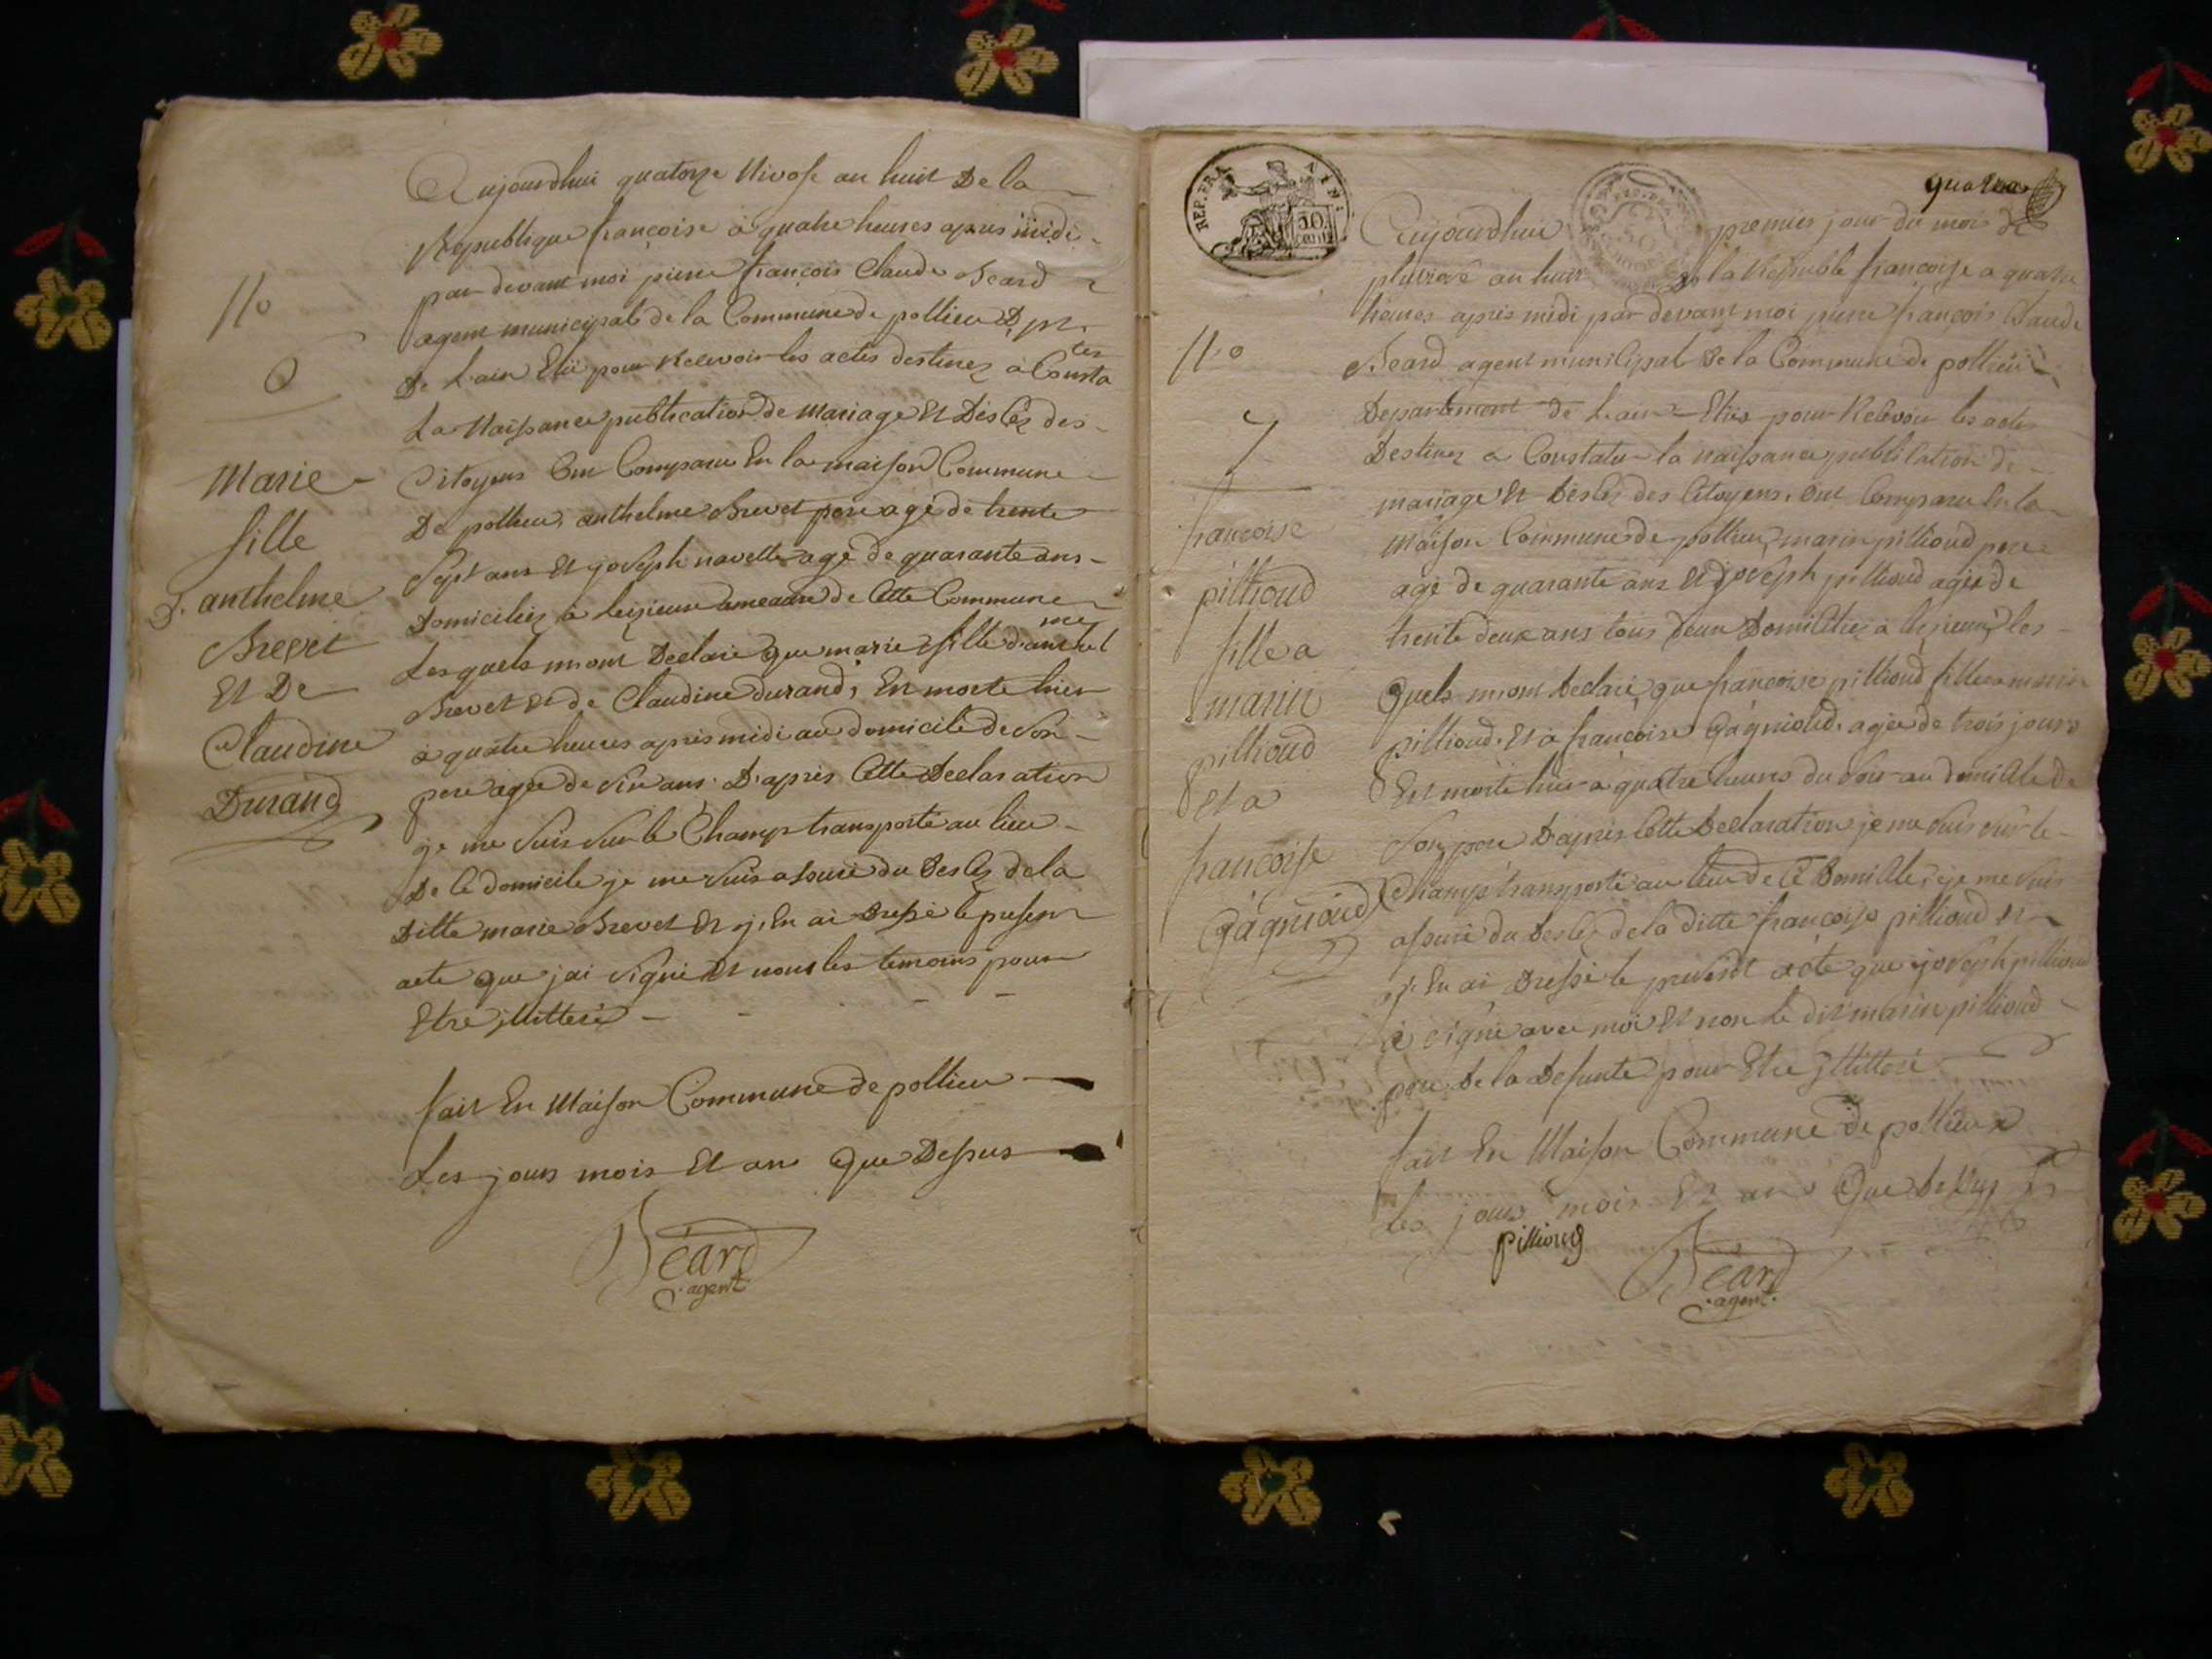 Aujourdhui quatorze Nivose an huit De la
Republique françoise a quatre heures apres midi
par devant moi pierre françois Claude Beard
agent municipal de la Commune de pollieu Dpt
De Lain Elii pour Recevoir les actes destinez a Consta
ter
La Naissance publication de Mariage Et Descez des
Citoyens Ont Comparu En la maison Commune
De pollieu, anthelme Brevet pere agé de trente
sept ans Et joseph navette agé de quarante ans
Domiciliez a leizieu ameau de Cette Commune
Lesquels m'ont Declaré Que marie fille d'anthel
me
Brevet Et de Claudine durand, Est morte hier
a quatre heures apres midi au domicile de son
pere agée de six ans. D'apres Cette Declaration
je me suis sur le Champ transporté au lieu
De Ce domicile je me suis assuré du Descez de la
Ditte marie Brevet Et j'En ai Dressé le present
acte Que jai signé Et non les temoins pour
Etre jllitteré
fait En Maison Commune de pollieu
Les jours mois Et an Que Dessus
Beard
agent
No
6
Marie
fille
d'anthelme
Brevet
Et De
Claudine
Durand
REP. FRA
50
cent
quatre
Aujourdhui premier jour du mois de
pluviose an huit de la Republe françoise a quatre
heures apres midi par devant moi pierre françois Claude
Beard agent municipal De la Commune de pollieu
Departement de Lain Elii pour Recevoir les actes
Destinez a Constater la naissance publication de
mariage Et Descez des Citoyens. Ont Comparu En la
Maison Commune de pollieu, marin pillioud pere
agé de quarante ans Et joseph pillioud agé de
trente deux ans tous deux Domiciliez a leizieu, les
Quels m'ont Declaré que françoise pillioud fille a marin
pillioud. Et a françoise Gagnioud. agée de trois jours
Est morte hier a quatre heures du soir au domicile de
son pere D'apres Cette Declaration je me suis sur le
Champ transporté au lieu de Ce Domicile, je me suis
assuré du Descez de la ditte françoise pillioud Et
j'En ai Dressé le present acte que joseph pillioud
a signé avec moi Et non le dit marin pillioud
pere De la Defunte pour Etre jllitteré
fait En Maison Commune de pollieu
les jours mois Et an Que Dessus
pilliоud
Beard
agent
No
7
françoise
pillioud
fille a
marin
pillioud
Et a
françoise
Gagnioud